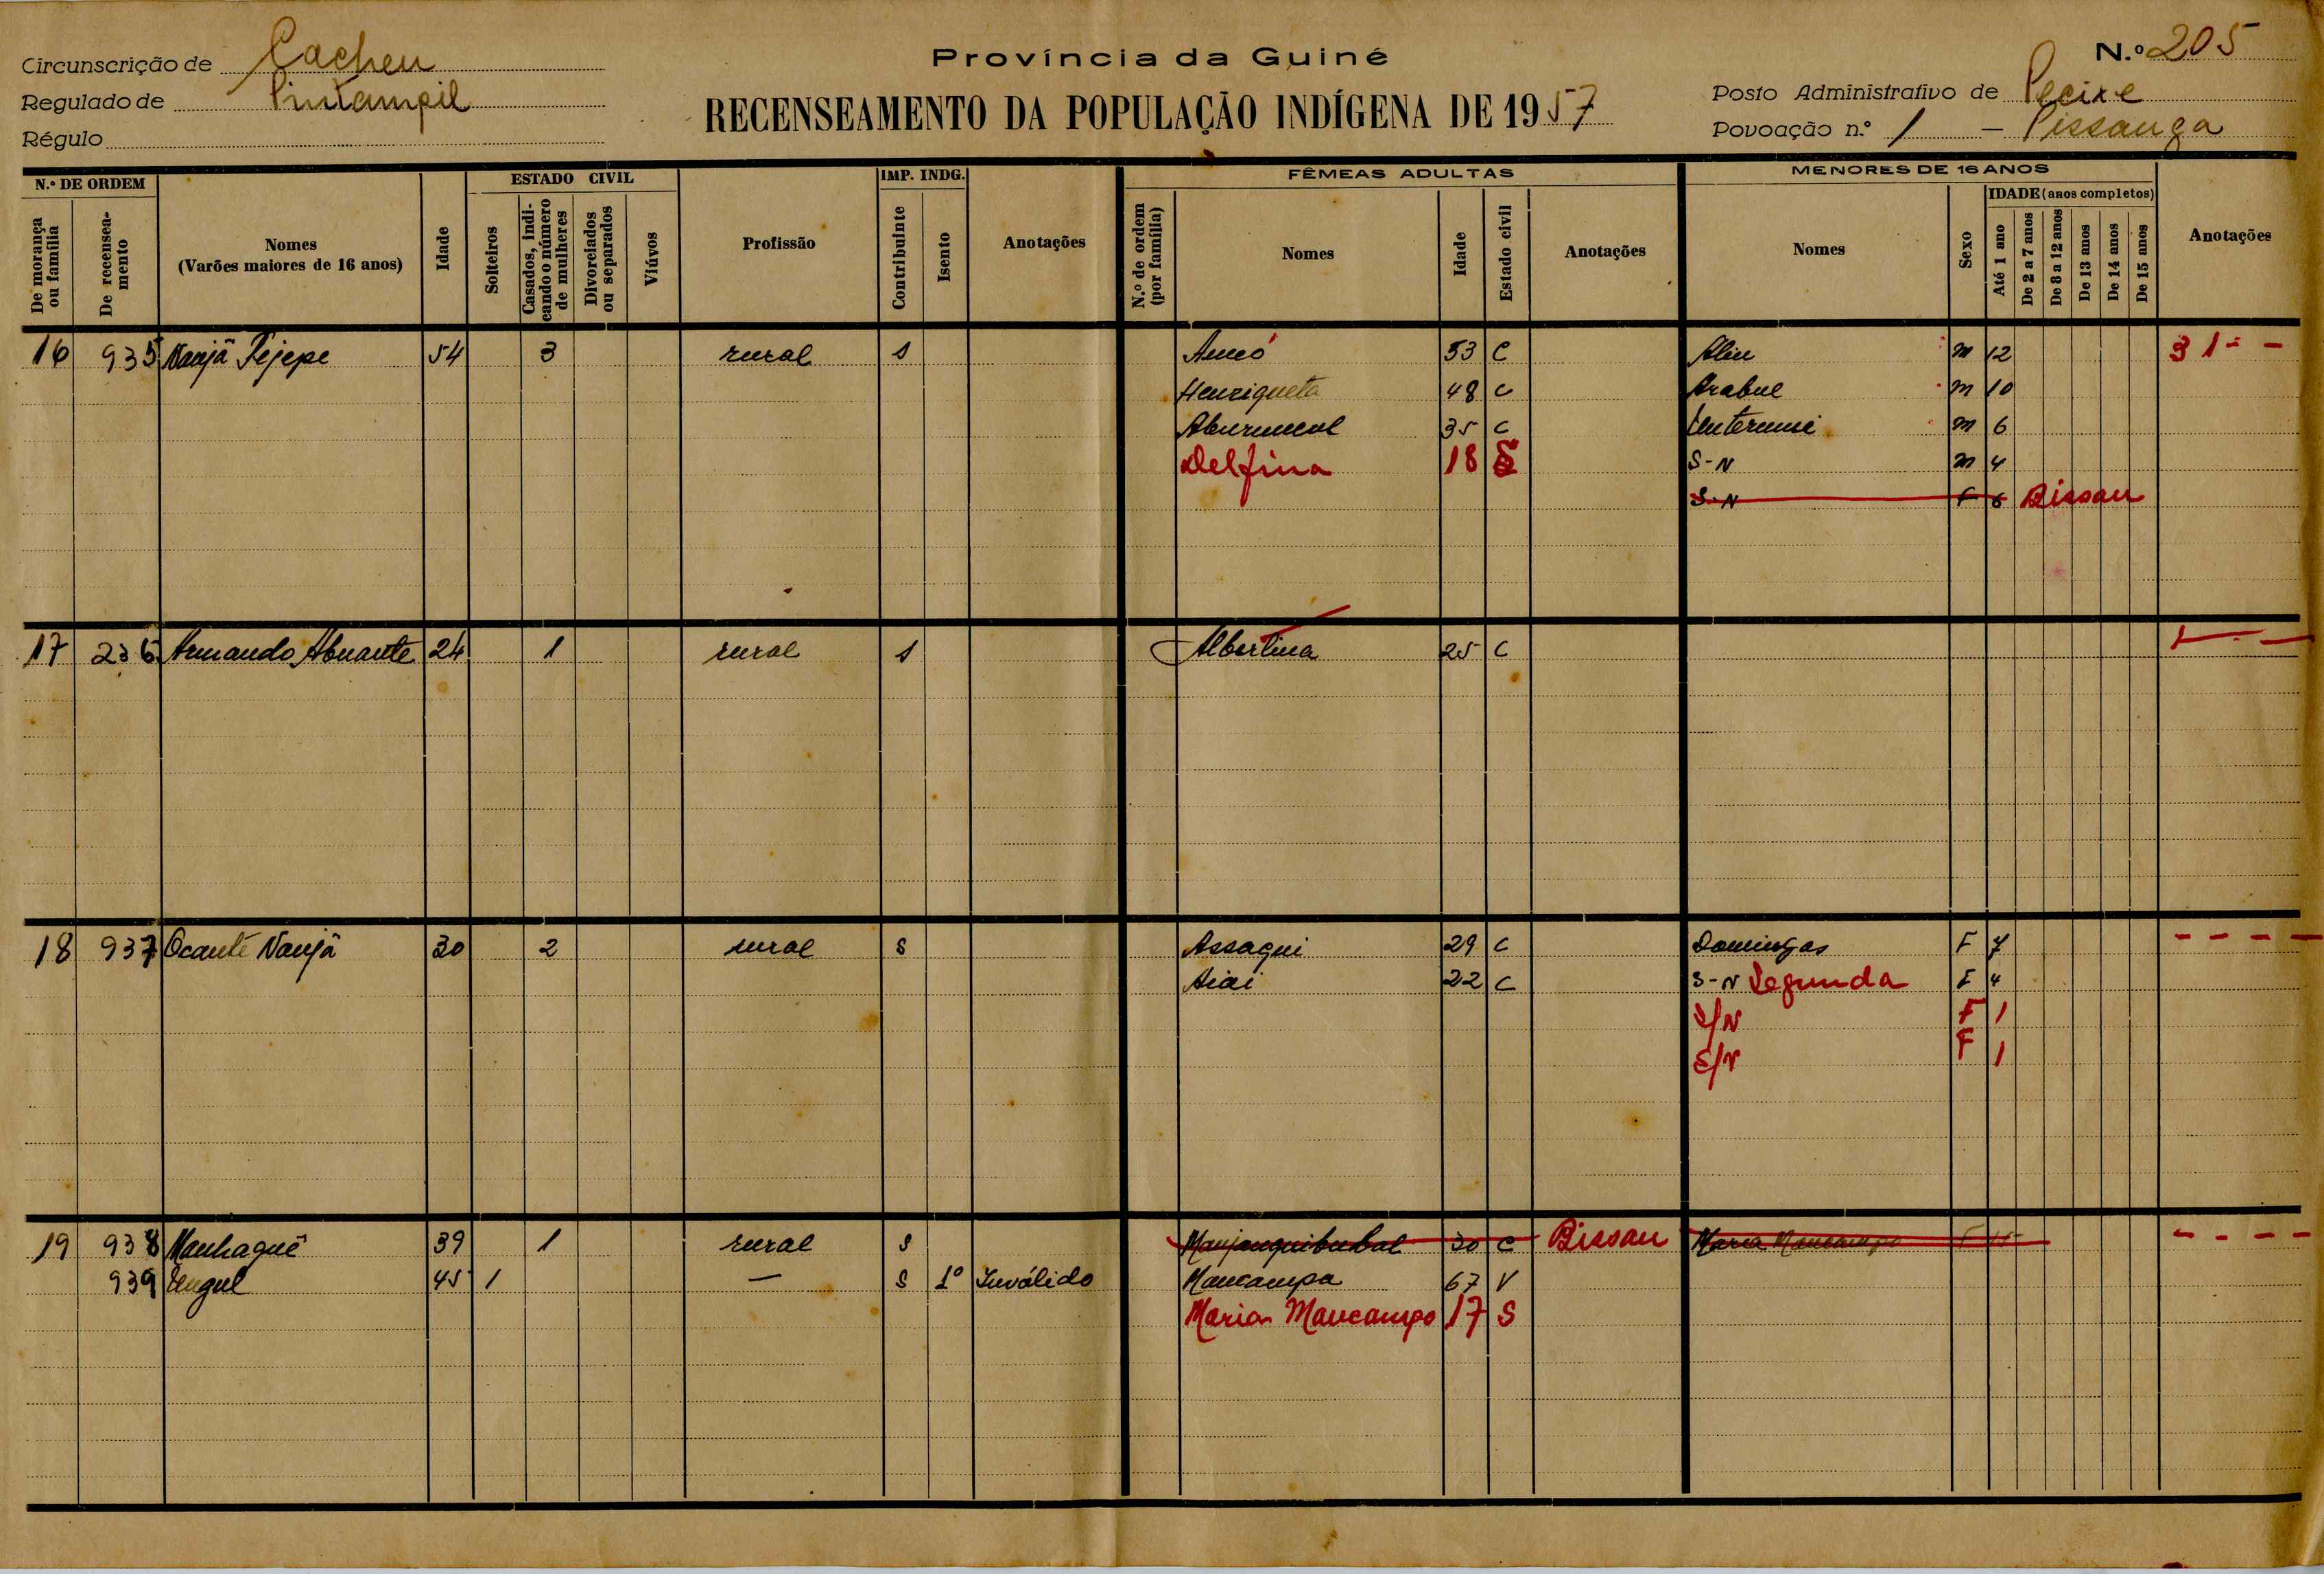 Circunscrição de Cacheu
Regulado de Pintampil
Régulo
Província da Guiné
RECENSEAMENTO DA POPULAÇÃO INDÍGENA DE 1957
N.º 205
Posto Administrativo de Pecixe
Povoação n.º 1 — Pissanga
N.º DE ORDEM
De morança ou família
De recenseamento
Nomes
(Varões maiores de 16 anos)
Idade
ESTADO CIVIL
Solteiros
Casados, indicando o número de mulheres
Divorciados ou separados
Viúvos
Profissão
IMP. INDG.
Contribuinte
Isento
Anotações
FÊMEAS ADULTAS
N.º de ordem (por família)
Nomes
Idade
Estado civil
Anotações
MENORES DE 16 ANOS
Nomes
Sexo
IDADE (anos completos)
Até 1 ano
De 2 a 7 anos
De 8 a 12 anos
De 13 anos
De 14 anos
De 15 anos
Anotações
16 935 Nanjã Pejepe 54 3 rural S Amcó 53 C Aliu M 12 3 1 = -
Henriqueta 48 C Arabul M 10
35 C M 6
Delfina 18 S S-N M 4
S-N F 6 Bissau
17 236 Armando Abuante 24 1 rural S Albertina 25 C
18 937 Ocante Nanjã 30 2 rural S Assaqui 29 C Domingas F 7 - - - -
Aiai 22 C S-N Segunda F 4
S/N F 1
S/N F 1
19 938 Manhaguê 39 1 rural S Manjanquibubal 30 C Bissau Maria Mancampa F 15 - - - -
939 Ungul 45 1 — S 1º Inválido Mancampa 67 V
Maria Mancampo 17 S